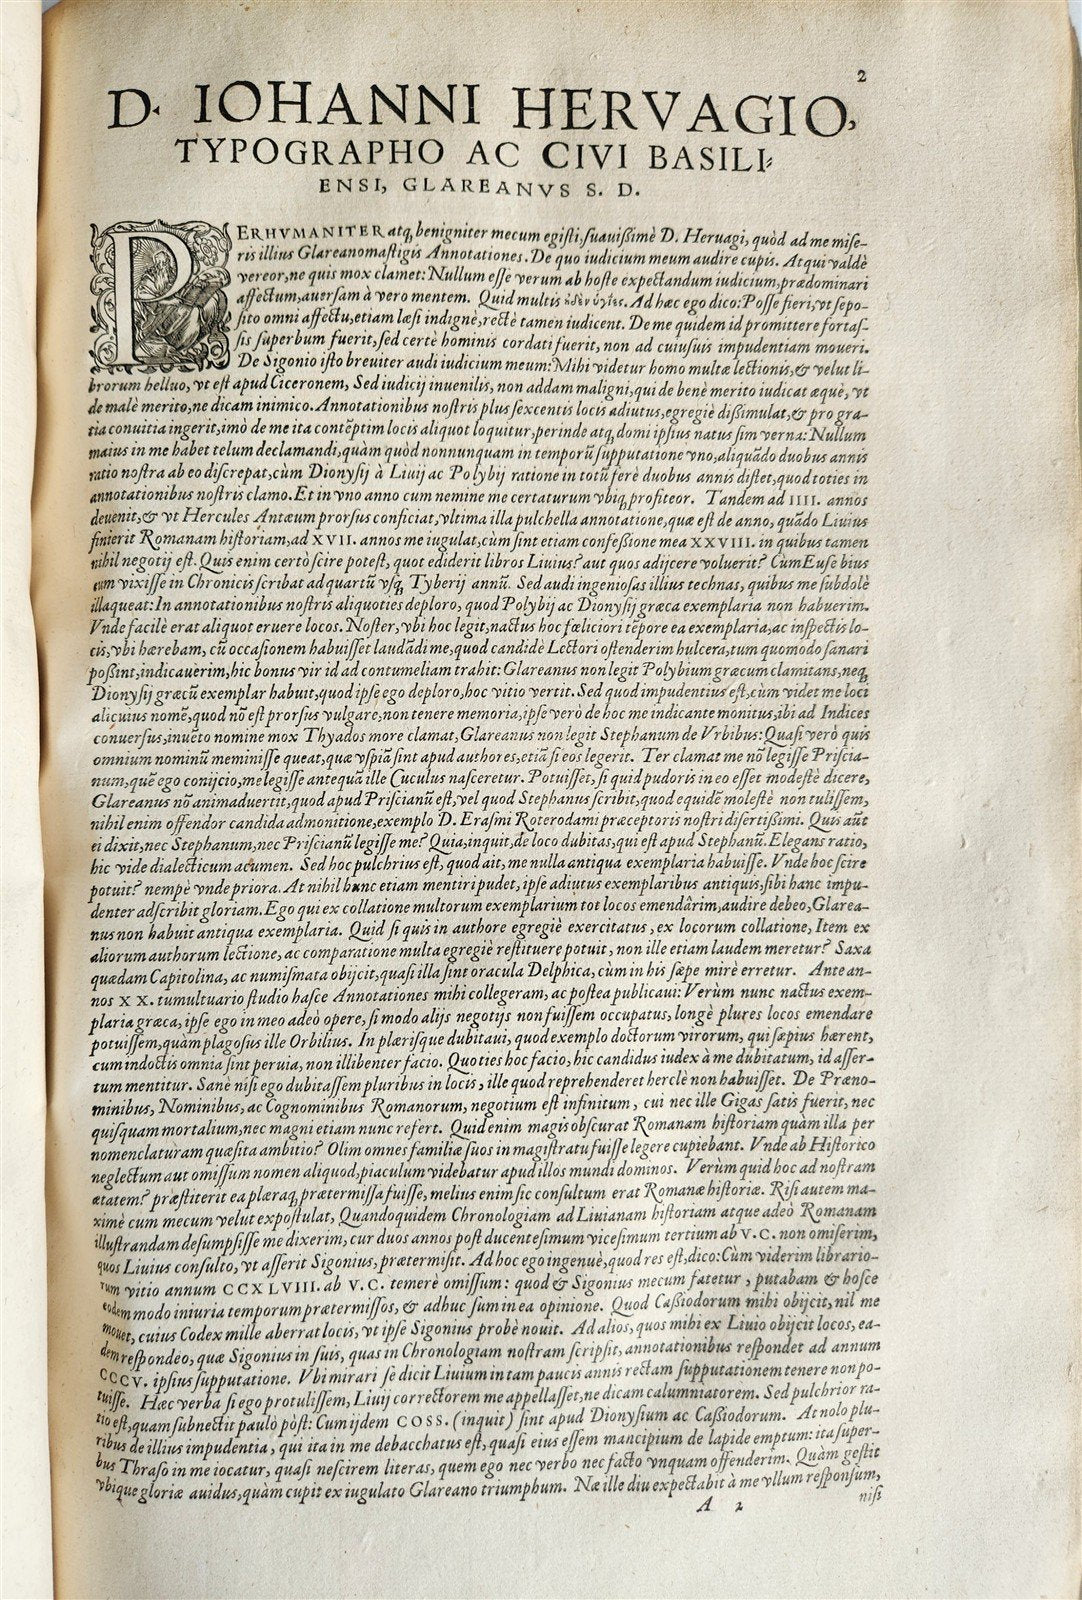 2
D. IOHANNI HERVAGIO,
TYPOGRAPHO AC CIVI BASILI=
ENSI, GLAREANVS S. D.
PERHVMANITER atq; benigniter mecum egisti, suauißimè D. Heruagi, quòd ad me mise-
ris illius Glareanomastigis Annotationes. De quo iudicium meum audire cupis. Atqui valdè
vereor, ne quis mox clamet: Nullum esse verum ab hoste expectandum iudicium, prædominari
affectum, auersam à vero mentem. Quid multis οὐδὲν ὑγιὲς. Ad hæc ego dico: Posse fieri, vt sepo-
sito omni affectu, etiam læsi indignè, rectè tamen iudicent. De me quidem id promittere fortas-
sis superbum fuerit, sed certè hominis cordati fuerit, non ad cuiusuis impudentiam moueri.
De Sigonio isto breuiter audi iudicium meum: Mihi videtur homo multæ lectionis, & velut li-
brorum helluo, vt est apud Ciceronem, Sed iudicij iuuenilis, non addam maligni, qui de benè merito iudicat æquè, vt
de malè merito, ne dicam inimico. Annotationibus nostris plus sexcentis locis adiutus, egregiè dißimulat, & pro gra-
tia conuitia ingerit, imò de me ita contẽptim locis aliquot loquitur, perinde atq; domi ipsius natus sim verna: Nullum
maius in me habet telum declamandi, quàm quòd nonnunquam in temporũ supputatione vno, aliquãdo duobus annis
ratio nostra ab eo discrepat, cùm Dionysij à Liuij ac Polybij ratione in totũ ferè duobus annis distet, quod toties in
annotationibus nostris clamo. Et in vno anno cum nemine me certaturum vbiq; profiteor. Tandem ad IIII. annos
deuenit, & vt Hercules Antæum prorsus conficiat, vltima illa pulchella annotatione, quæ est de anno, quãdo Liuius
finierit Romanam historiam, ad XVII. annos me iugulat, cùm sint etiam confeßione mea XXVIII. in quibus tamen
nihil negotij est. Quis enim certò scire potest, quot ediderit libros Liuius? aut quos adijcere voluerit? Cùm Eusebius
eum vixisse in Chronicis scribat ad quartũ vsq; Tyberij annũ. Sed audi ingeniosas illius technas, quibus me subdolè
illaqueat: In annotationibus nostris aliquoties deploro, quod Polybij ac Dionysij græca exemplaria non habuerim.
Vnde facilè erat aliquot eruere locos. Noster, vbi hoc legit, nactus hoc fœliciori tẽpore ea exemplaria, ac inspectis lo-
cis, vbi hærebam, cũ occasionem habuisset laudãdi me, quod candidè Lectori ostenderim hulcera, tum quomodo sanari
poßint, indicauerim, hic bonus vir id ad contumeliam trahit: Glareanus non legit Polybium græcum clamitans, neq;
Dionysij græcũ exemplar habuit, quod ipse ego deploro, hoc vitio vertit. Sed quod impudentius est, cùm videt me loci
alicuius nomẽ, quod nõ est prorsus vulgare, non tenere memoria, ipse verò de hoc me indicante monitus, ibi ad Indices
conuersus, inuẽto nomine mox Thyados more clamat, Glareanus non legit Stephanum de Vrbibus: Quasi verò quis
omnium nominũ meminisse queat, quæ vspiã sint apud authores, etiã si eos legerit. Ter clamat me nõ legisse Priscia-
num, quẽ ego conijcio, me legisse antequã ille Cuculus nasceretur. Potuisset, si quid pudoris in eo esset modestè dicere,
Glareanus nõ animaduertit, quod apud Priscianũ est, vel quod Stephanus scribit, quod equidẽ molestè non tulissem,
nihil enim offendor candida admonitione, exemplo D. Erasmi Roterodami præceptoris nostri disertißimi. Quis aũt
ei dixit, nec Stephanum, nec Priscianũ legisse me? Quia, inquit, de loco dubitas, qui est apud Stephanũ. Elegans ratio,
hic vide dialecticum acumen. Sed hoc pulchrius est, quod ait, me nulla antiqua exemplaria habuisse. Vnde hoc scire
potuit? nempè vnde priora. At nihil hunc etiam mentiri pudet, ipse adiutus exemplaribus antiquis, sibi hanc impu-
denter adscribit gloriam. Ego qui ex collatione multorum exemplarium tot locos emendârim, audire debeo, Glarea-
nus non habuit antiqua exemplaria. Quid si quis in authore egregiè exercitatus, ex locorum collatione, Item ex
aliorum authorum lectione, ac comparatione multa egregiè restituere potuit, non ille etiam laudem meretur? Saxa
quædam Capitolina, ac numismata obijcit, quasi illa sint oracula Delphica, cùm in his sæpe mirè erretur. Ante an-
nos XX. tumultuario studio hasce Annotationes mihi collegeram, ac postea publicaui: Verùm nunc nactus exem-
plaria græca, ipse ego in meo adeò opere, si modo alijs negotijs non fuissem occupatus, longè plures locos emendare
potuissem, quàm plagosus ille Orbilius. In plærisque dubitaui, quod exemplo doctorum virorum, qui sæpius hærent,
cum indoctis omnia sint peruia, non illibenter facio. Quoties hoc facio, hic candidus iudex à me dubitatum, id asser-
tum mentitur. Sanè nisi ego dubitassem pluribus in locis, ille quod reprehenderet herclè non habuisset. De Præno-
minibus, Nominibus, ac Cognominibus Romanorum, negotium est infinitum, cui nec ille Gigas satis fuerit, nec
quisquam mortalium, nec magni etiam nunc refert. Quid enim magis obscurat Romanam historiam quàm illa per
nomenclaturam quæsita ambitio? Olim omnes familiæ suos in magistratu fuisse legere cupiebant. Vnde ab Historico
neglectum aut omissum nomen aliquod, piaculum videbatur apud illos mundi dominos. Verùm quid hoc ad nostram
ætatem? præstiterit ea plæraq; prætermissa fuisse, melius enim sic consultum erat Romanæ historiæ. Risi autem ma-
ximè cum mecum velut expostulat, Quandoquidem Chronologiam ad Liuianam historiam atque adeò Romanam
illustrandam desumpsisse me dixerim, cur duos annos post ducentesimum vicesimum tertium ab V.C. non omiserim,
quos Liuius consulto, vt asserit Sigonius, prætermisit. Ad hoc ego ingenuè, quod res est, dico: Cùm viderim librario-
rum vitio annum CCXLVIII. ab V.C. temerè omissum: quod & Sigonius mecum fatetur, putabam & hosce
eodem modo iniuria temporum prætermissos, & adhuc sum in ea opinione. Quod Caßiodorum mihi obijcit, nil me
mouet, cuius Codex mille aberrat locis, vt ipse Sigonius probè nouit. Ad alios, quos mihi ex Liuio obijcit locos, ea-
dem respondeo, quæ Sigonius in suis, quas in Chronologiam nostram scripsit, annotationibus respondet ad annum
CCCV. ipsius supputatione. Vbi mirari se dicit Liuium in tam paucis annis rectam supputationem tenere non po-
tuisse. Hæc verba si ego protulissem, Liuij correctorem me appellasset, ne dicam calumniatorem. Sed pulchrior ra-
tio est, quam subnectit paulò pòst: Cum ijdem COSS. (inquit) sint apud Dionysium ac Caßiodorum. At nolo plu-
ribus de illius impudentia, qui ita in me debacchatus est, quasi eius essem mancipium de lapide emptum: ita super-
bus Thraso in me iocatur, quasi nescirem literas, quem ego nec verbo nec facto vnquam offenderim. Quàm gestit
vbique gloriæ auidus, quàm cupit ex iugulato Glareano triumphum. Næ ille diu expectabit à me vllum responsum,
A 2 nisi